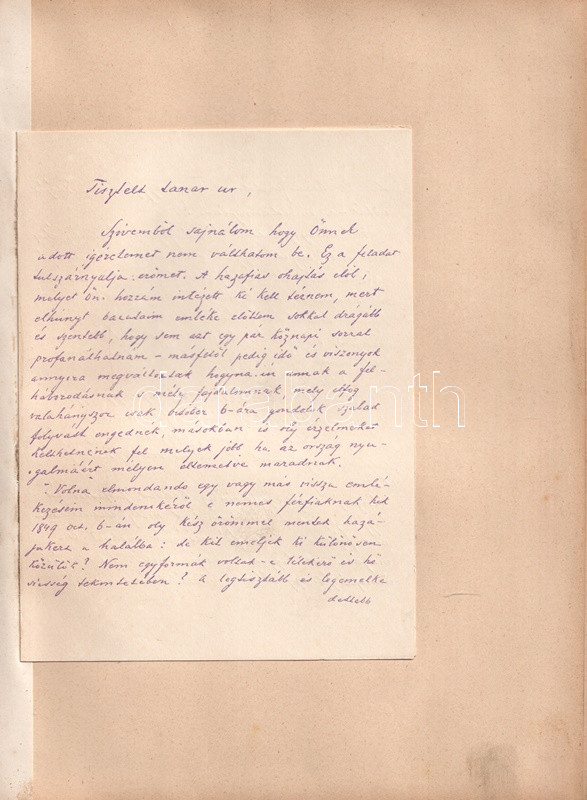 Tisztelt tanar ur,
Szivemböl sajnálom hogy Önnek
adott igéretemet nem válthatom be. Ez a feladat
tulszárnyalja erömet. A hazafias ohajtás elöl,
melyet Ön hozzám intézett ki kell térnem, mert
elhunyt barataim emléke elöttem sokkal drágább
és szentebb, hogy sem azt egy pár köznapi sorral
profanálhatnam – másfelöl pedig idö és viszonyok
annyira megváltoztak hogyha én annak a fel-
háborodásnak s mély fajdalomnak mely elfog
valahányszor csak October 6-ára gondolok szabad
folyást engednék, másokban is oly érzelmeket
kelthetnének fel melyek jobb ha az ország nyu-
galmáért mélyen eltemetve maradnak.
Volna elmondando egy vagy más vissza emlé-
kezésem mindenikéröl e nemes férfiaknak kik
1849 oct. 6-án oly kész örömmel mentek hazá-
jukért a halálba: de kit emeljek ki különösen
közülök? Nem egyformák voltak-e lélekerö és hö
siesség tekintetében? a legtisztább és legemelke
dettebb
darabanth